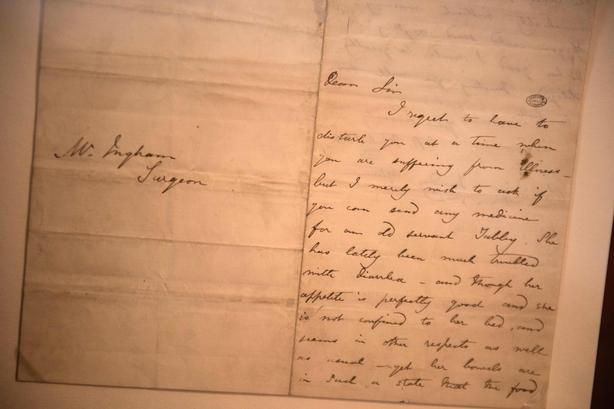 Mr. Ingham
Surgeon
Dear Sir
I regret to have to
disturb you at a time when
you are suffering from illness –
but I merely wish to ask if
you can send any medicine
for our old servant Tabby. She
has lately been much troubled
with Diarrhea – and though her
appetite is perfectly good and she
is not confined to her bed, and
seems in other respects as well
as usual – yet her bowels are
in such a state that the food